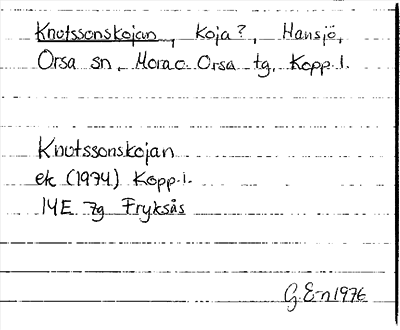 Knutssonskojan, koja?, Hansjö,
Orsa sn, Mora o. Orsa tg, Kopp. l.
Knutssonskojan
ek (1974) Kopp. l.
14E 7g Fryksås
G. E-n 1976